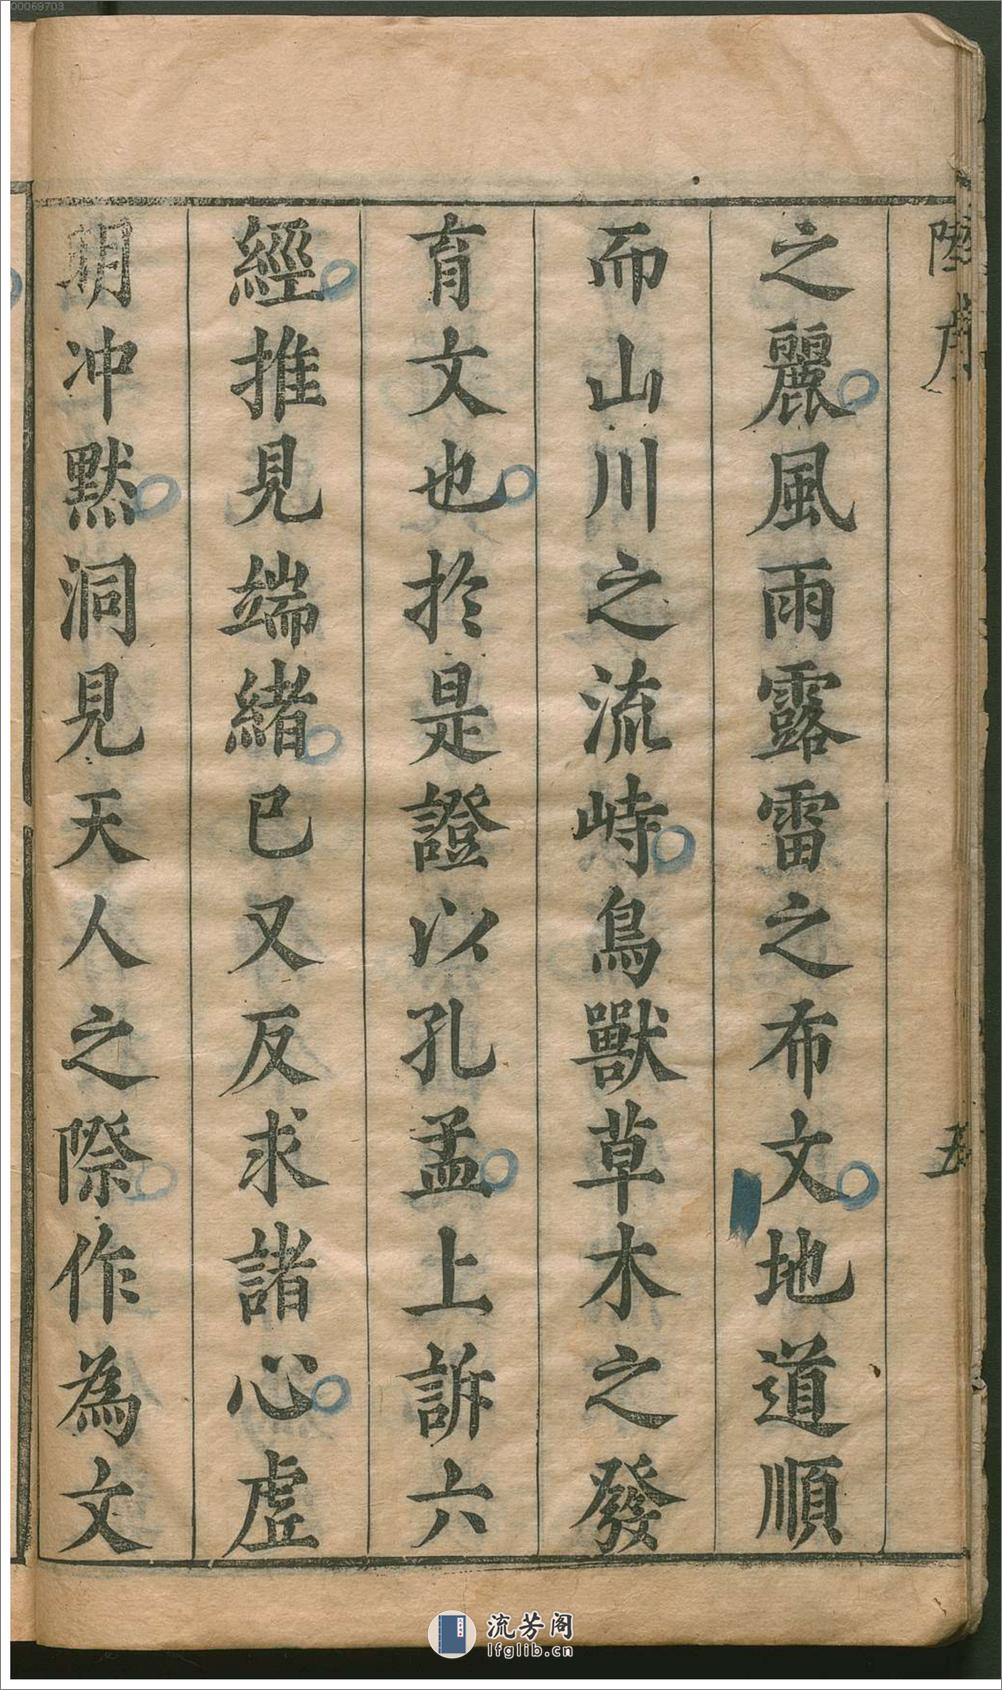 00069703
陸序
五
之麗風雨露雷之布文地道順
而山川之流峙鳥獸草木之發
育文也於是證以孔孟上訴六
經推見端緒已又反求諸心虛
明冲黙洞見天人之際作為文
流芳阁
lfglib.cn